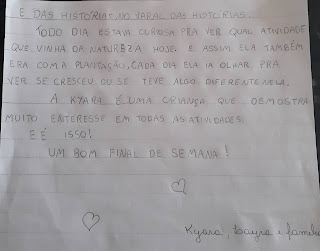 E DAS HISTORIAS NO VARAL DAS HISTORIAS...
TODO DIA ESTAVA CURIOSA PRA VER QUAL ATIVIDADE
QUE VINHA DA NATUREZA HOJE. E ASSIM ELA TAMBÉM
ERA COM A PLANTAÇÃO, CADA DIA ELA IA OLHAR PRA
VER SE CRESCEU OU SE TEVE ALGO DIFERENTE NELA.
A KYARA É UMA CRIANÇA QUE DEMOSTRA
MUITO ENTERESSE EM TODAS AS ATIVIDADES.
E É ISSO!
UM BOM FINAL DE SEMANA!
Kyara, e família